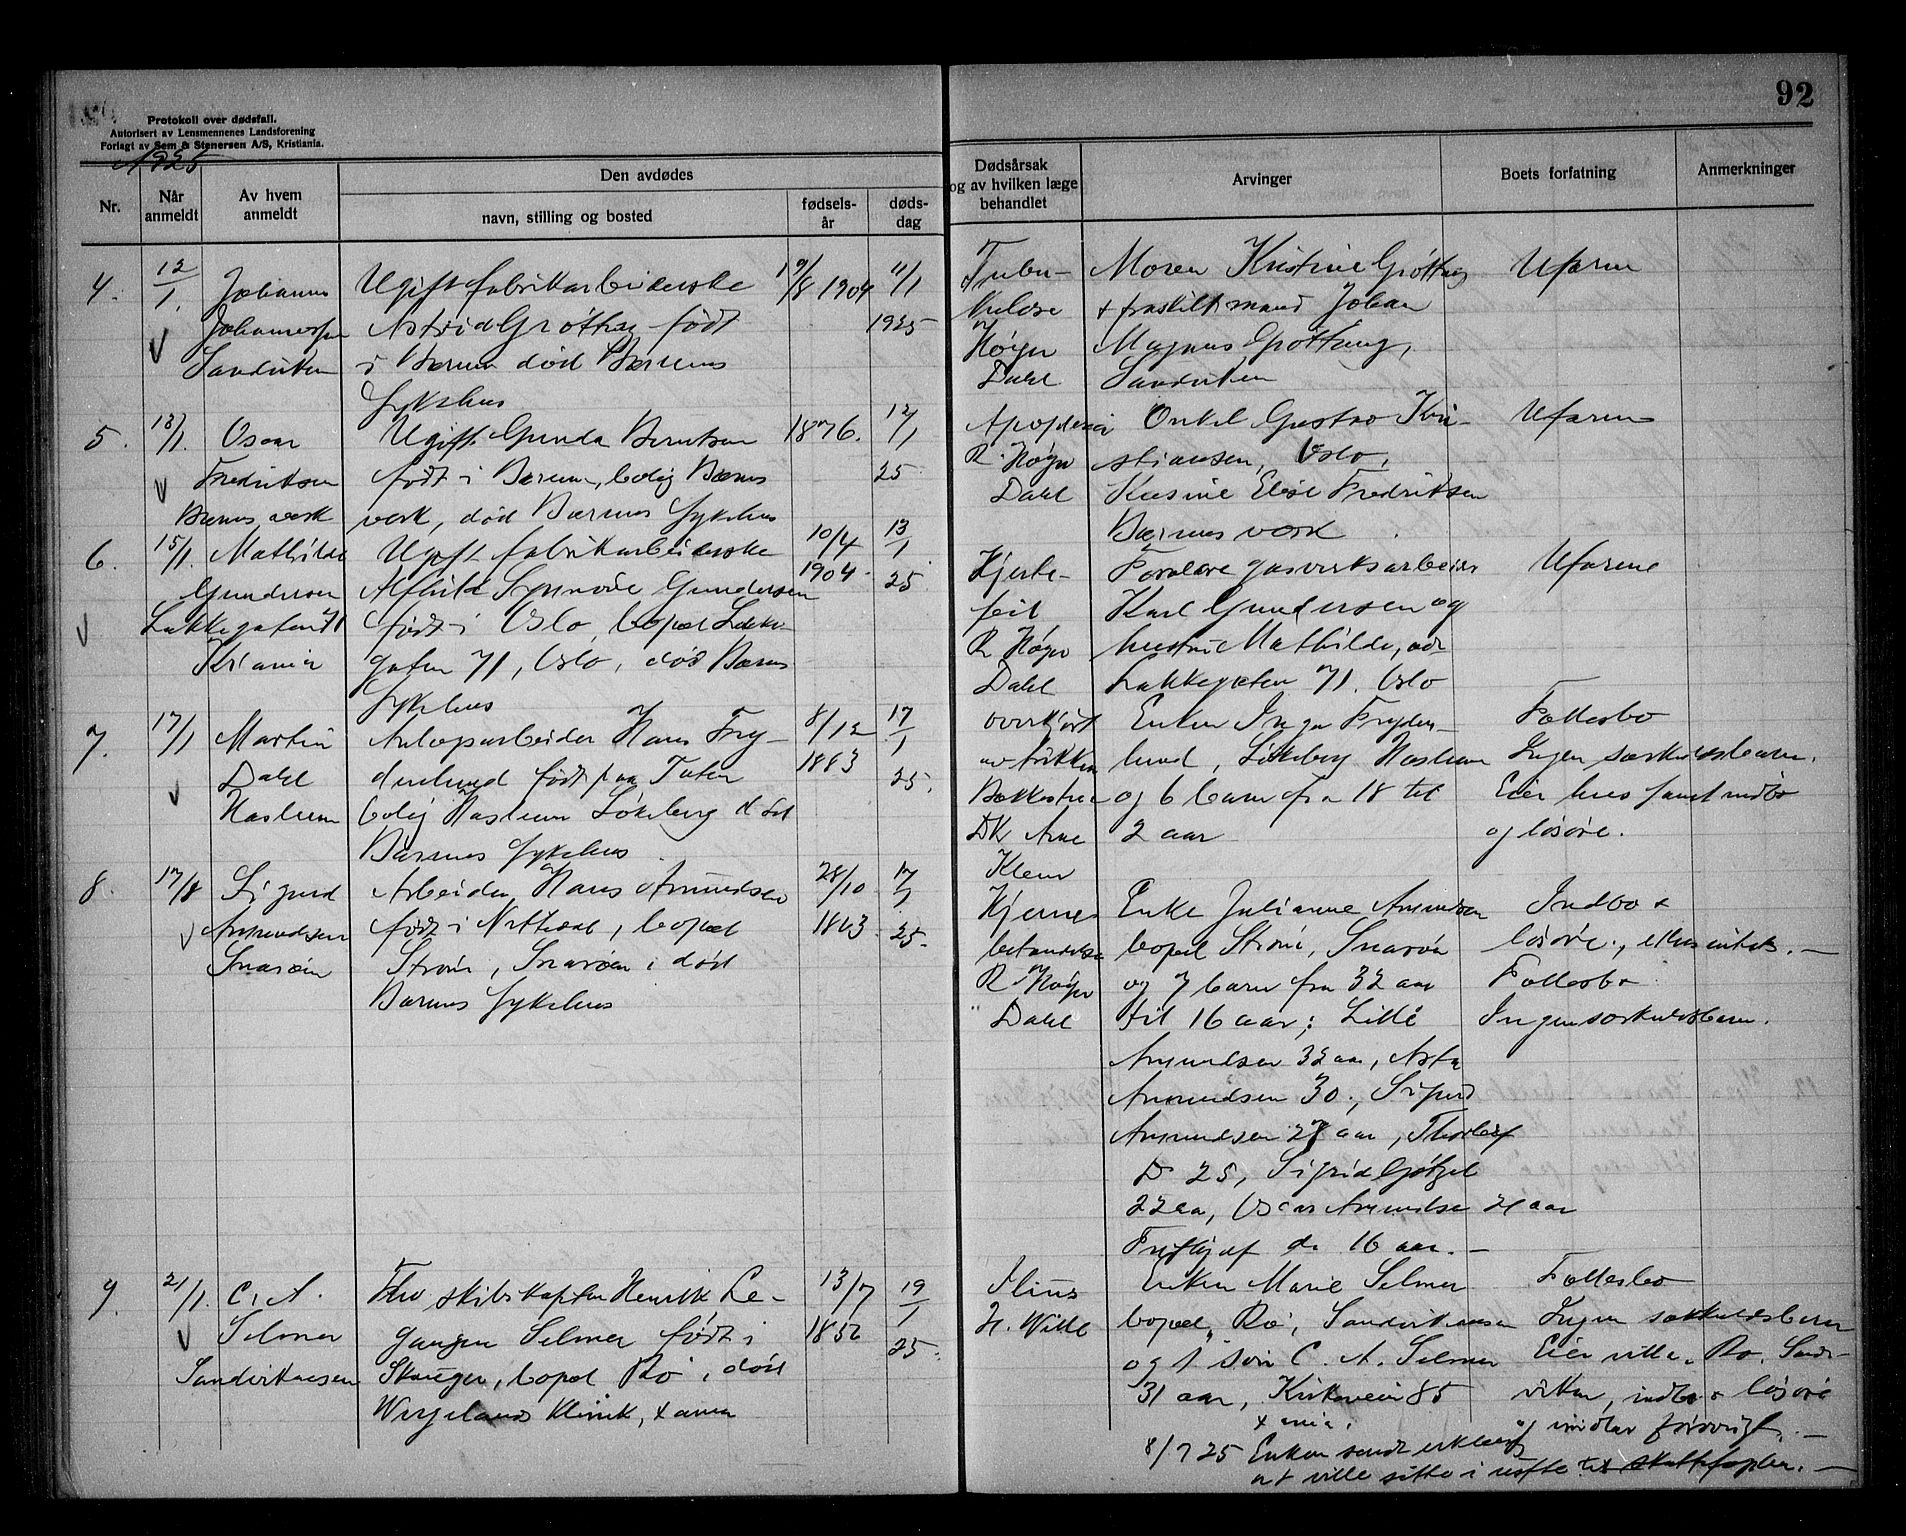 92
Protokoll over dødsfall.
Autorisert av Lensmennenes Landsforening
Forlagt av Sem & Stenersen A/S, Kristiania.
1925
Nr.
Når anmeldt
Av hvem anmeldt
Den avdødes
navn, stilling og bosted
fødsels-år
døds-dag
Dødsårsak og av hvilken læge behandlet
Arvinger
Boets forfatning
Anmerkninger
4.
12/1
Johannes
Sandviken
Ugift fabrikarbeiderske
Astrid Grøttug født
i Bærum død Bærums
Sykehus
19/8 1904
11/1
1925
Tuber-
kulose
Høyer
Dahl
Moren Kristine Grøttug
+ fraskilt mand Johan
Magnus Grøttug,
Sandviken
Uformu
5.
13/1
Oscar
Fredriksen
Bærums verk
Ugift Gunda Berntsen
født i Bærum, bolig Bærums
verk, død Bærums Sykehus
1876.
12/1
25
R. Høyer
Dahl
Onkel Gustav Kri-
stiansen, Oslo,
Elise Fredriksen
Bærums verk
Uformu
6.
15/1
Mathilde
Gundersen
Lakkegaten 71
Kr.ania
Ugift fabrikarbeiderske
Alfhild Synnøve Gundersen
født i Oslo, bopæl Lakke-
gaten 71, Oslo, død Bærums
Sykehus
10/4
1904
13/1
25
Hjerte-
feil
R Høyer
Dahl
Forældre gasverksarbeider
Karl Gundersen og
hustru Mathilde, adr
Lakkegaten 71. Oslo
Uformu
7.
17/1
Martin
Dahl
Haslum
Anlegsarbeider Hans Fry-
denlund født paa Toten
bolig Haslum Løkeberg død
Bærums Sykehus
8/12
1883
17/1
25.
overkjørt
av trikken
Bekkestua
DK Arne
Klem
Enken Inga Fryden-
lund, Løkeberg Haslum
og 6 barn fra 18 til
2 aar
Fellesbo
Ingen særkuldsbarn.
Eier hus samt indbo
og løsøre.
8.
17/8
Sigurd
Amundsen
Snarøen
Arbeider Hans Amundsen
født i Nittedal, bopæl
Snarøen, død
Bærums Sykehus
28/10
1863
17/1
25.
R Høyer
Dahl
Enke Julianne Amundsen
bopæl Snarøen
og 7 barn fra 32 aar
til 16 aar:
Amundsen 32 aar, Asta
Amundsen 30., Sigurd
Amundsen 27 aar, Thorleif
D 25, Sigrid
22 aa, Oscar Amundsen 21 aar
Fritjof do 16 aar. —
Indbo +
løsøre., ellers intet. —
Fellesbo
Ingen særkuldsbarn.
9.
21/1.
C. A.
Selmer
Sandvikaasen
Fhv skibskaptein Henrik Le-
gangen Selmer født i
Stavanger, bopæl "Ro", død
Wergelands Klinik, X ania
13/7
1852
19/1
25.
Ilius
H. Wille
Enken Marie Selmer
bopæl "Ro", Sandvikaasen
og 1 søn C. A. Selmer
31 aar, Kirkeveien 85
X ania.
Fellesbo
Ingen særkuldsbarn
Eier villa "Ro", Sand-
viken, indbo + løsøre
og
8/7 25 Enken sendt erklæring
at ville sitte i uskifte til skattefogden. —